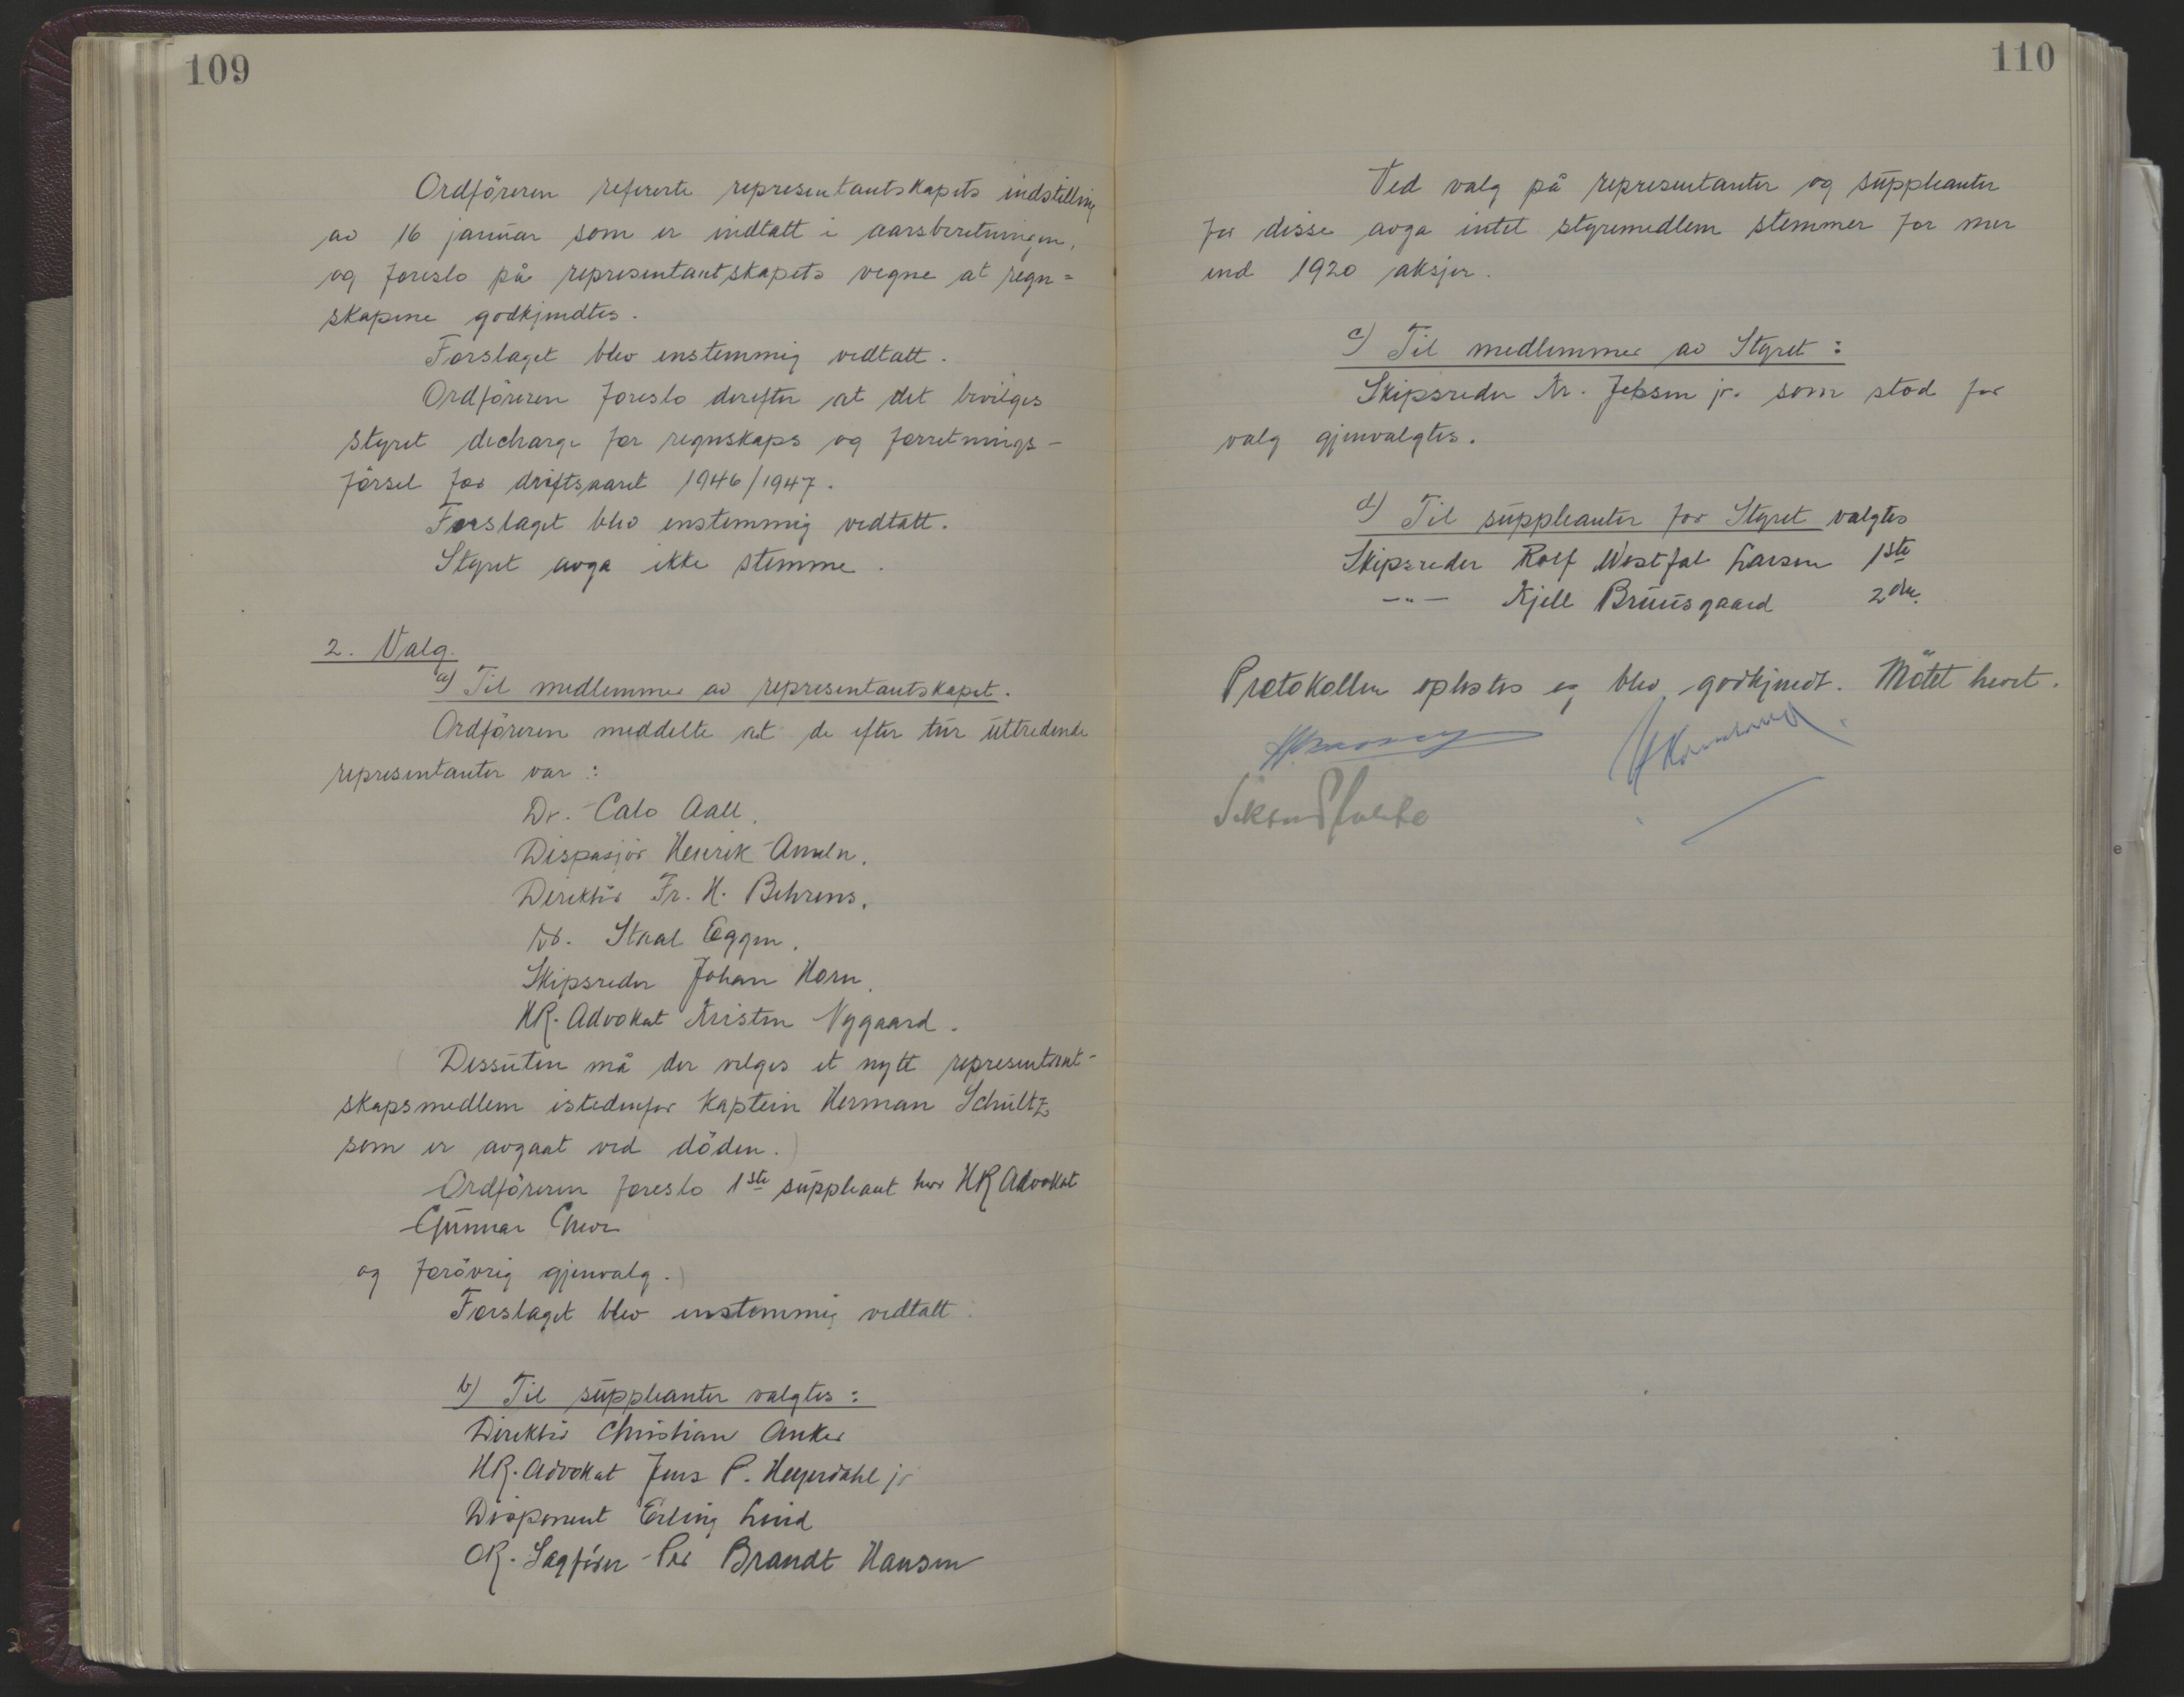 109
Ordföreren refererte representantskapets indstilling
av 16 januar som er indtatt i aarsberetningen,
og foreslo på representantskapets vegne at regn=
skapene godkjendtes.
Forslaget blev enstemmig vedtatt.
Ordföreren foreslo derefter at det bevilges
styret decharge for regnskaps og forretnings-
försel for driftsaaret 1946/1947.
Forslaget blev enstemmig vedtatt.
Styret avga ikke stemme.
2. Valg.
a) Til medlemmer av representantskapet.
Ordföreren meddelte at de efter tur uttredende
representanter var:
Dr. Cato Aall.
Dispasjör Henrik Ameln.
Direktör Fr. H. Behrens.
Staal Eggen.
Skipsreder Johan Horn.
HR. Advokat Kristen Nygaard.
Dessuten må der velges et nytt representant-
skapsmedlem istedenfor kaptein Herman Schultz
som er avgaat ved döden.
Ordföreren foreslo 1ste suppleant herr HR Advokat
Gunnar
og forövrig gjenvalg.
Forslaget blev enstemmig vedtatt.
b) Til suppleanter valgtes:
Direktör Christian Anker
HR. Advokat Jens P. Heyerdahl jr
Disponent Erling Lind
OR. Sagförer Per Brandt Hansen
110
Ved valg på representanter og suppleanter
for disse avga intet styremedlem stemmer for mer
end 1920 aksjer.
c) Til medlemmer av Styret:
Skipsreder Kr. Jebsen jr. som stod for
valg gjenvalgtes.
d) Til suppleanter for Styret valgtes
Skipsreder Rolf Westfal Larsen 1ste
-"- Kjell Bruusgaard 2den.
Protokollen oplestes og blev godkjendt. Mötet hevet.